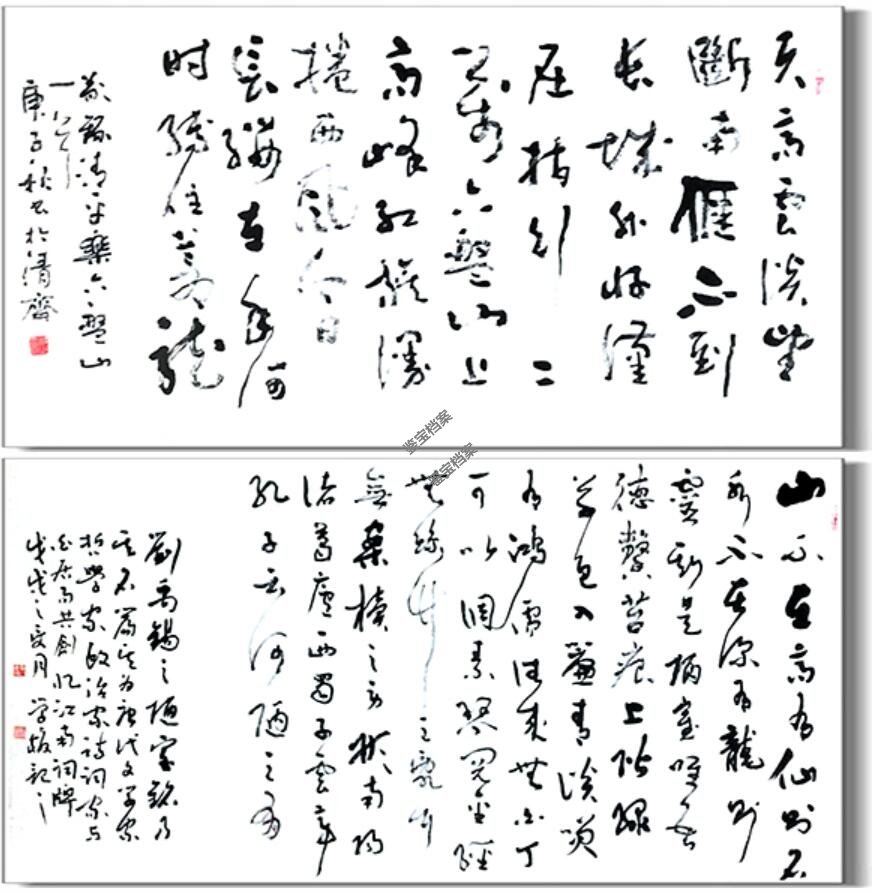 天高雲淡望
斷南雁不到
長城外好漢
屈指行二
萬六盤山上
高峰紅旗漫
捲西風今日
長纓在手何
時縛住蒼龍
錄清平樂六盤山
一首
庚子秋书於清齋
鉴宝档案
鉴宝档案
山不在高有仙則名
水不在深有龍則
靈斯是陋室唯吾
德馨苔痕上階綠
草色入簾青談笑
有鴻儒往來無白丁
可以調素琴閱金經
無絲竹之亂耳
無案牘之勞形南陽
諸葛廬西蜀子雲亭
孔子云何陋之有
劉禹錫之陋室銘乃
其名篇其为唐代文学家
哲學家政治家詩詞家与
白居易共創憶江南詞牌
戊戌之夏月 学記之